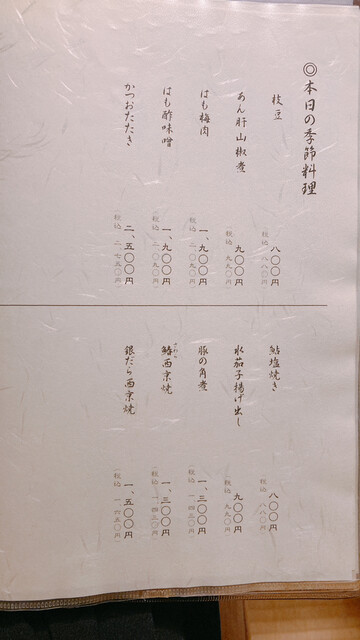 ◎本日の季節料理
枝豆
八〇〇円
(税込 八八〇円)
あん肝山椒煮
九〇〇円
(税込 九九〇円)
はも梅肉
一、九〇〇円
(税込 二、〇九〇円)
はも酢味噌
一、九〇〇円
(税込 二、〇九〇円)
かつおたたき
二、五〇〇円
(税込 二、七五〇円)
鮎塩焼き
八〇〇円
(税込 八八〇円)
水茄子揚げ出し
九〇〇円
(税込 九九〇円)
豚の角煮
一、三〇〇円
(税込 一、四三〇円)
鰆西京焼
さわら
一、三〇〇円
(税込 一、四三〇円)
銀だら西京焼
一、五〇〇円
(税込 一、六五〇円)